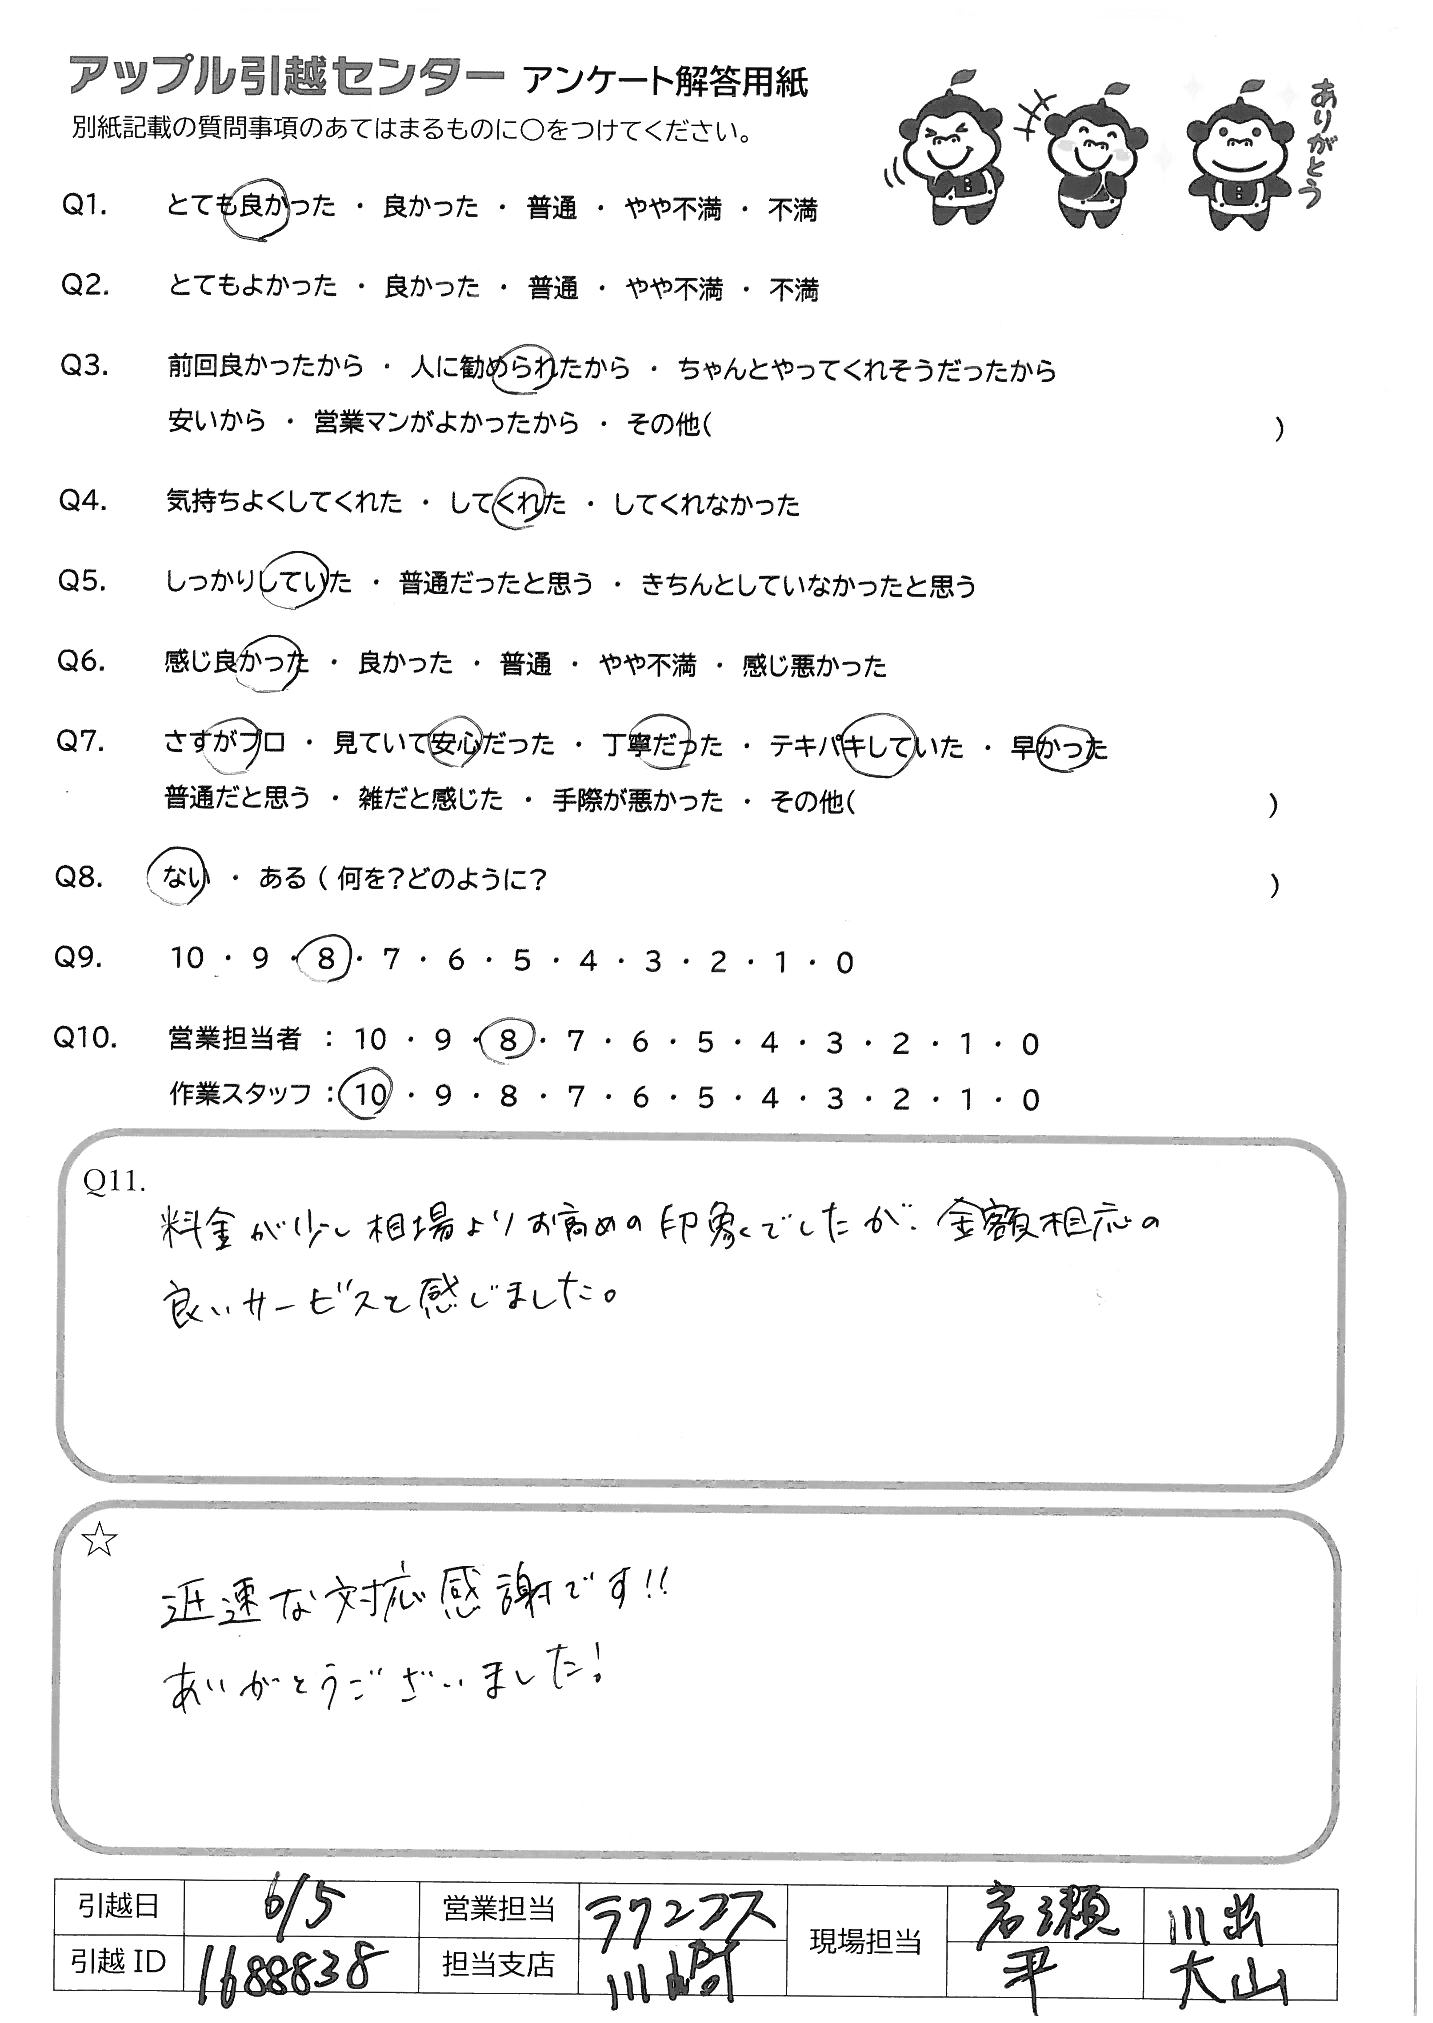 アップル引越センター アンケート解答用紙
別紙記載の質問事項のあてはまるものに○をつけてください。
ありがとう
Q1. とても良かった ・ 良かった ・ 普通 ・ やや不満 ・ 不満
Q2. とてもよかった ・ 良かった ・ 普通 ・ やや不満 ・ 不満
Q3. 前回良かったから ・ 人に勧められたから ・ ちゃんとやってくれそうだったから
安いから ・ 営業マンがよかったから ・ その他( )
Q4. 気持ちよくしてくれた ・ してくれた ・ してくれなかった
Q5. しっかりしていた ・ 普通だったと思う ・ きちんとしていなかったと思う
Q6. 感じ良かった ・ 良かった ・ 普通 ・ やや不満 ・ 感じ悪かった
Q7. さすがプロ ・ 見ていて安心だった ・ 丁寧だった ・ テキパキしていた ・ 早かった
普通だと思う ・ 雑だと感じた ・ 手際が悪かった ・ その他( )
Q8. ない ・ ある ( 何を?どのように? )
Q9. 10 ・ 9 ・ 8 ・ 7 ・ 6 ・ 5 ・ 4 ・ 3 ・ 2 ・ 1 ・ 0
Q10. 営業担当者 : 10 ・ 9 ・ 8 ・ 7 ・ 6 ・ 5 ・ 4 ・ 3 ・ 2 ・ 1 ・ 0
作業スタッフ : 10 ・ 9 ・ 8 ・ 7 ・ 6 ・ 5 ・ 4 ・ 3 ・ 2 ・ 1 ・ 0
Q11.
料金が少し相場よりお高めの印象でしたが、金額相応の
良いサービスと感じました。
☆
迅速な対応感謝です!!
ありがとうございました!
引越日 6/5 営業担当 ラクニコス 現場担当 岩瀬 川出
引越ID 1688838 担当支店 川崎 平 大山